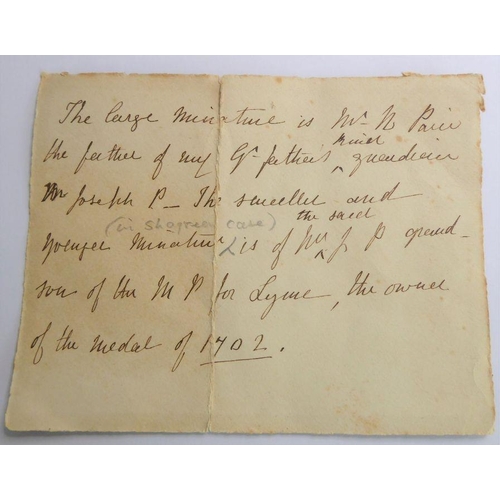 The large Miniature is Mr. N Paice
the father of my Gr. father's kind guardian
Mr Joseph P — The smaller and
(in shagreen case) the said
younger Miniature is of Mr J P grand-
son of the M P for Lyme, the owner
of the medal of 1702.